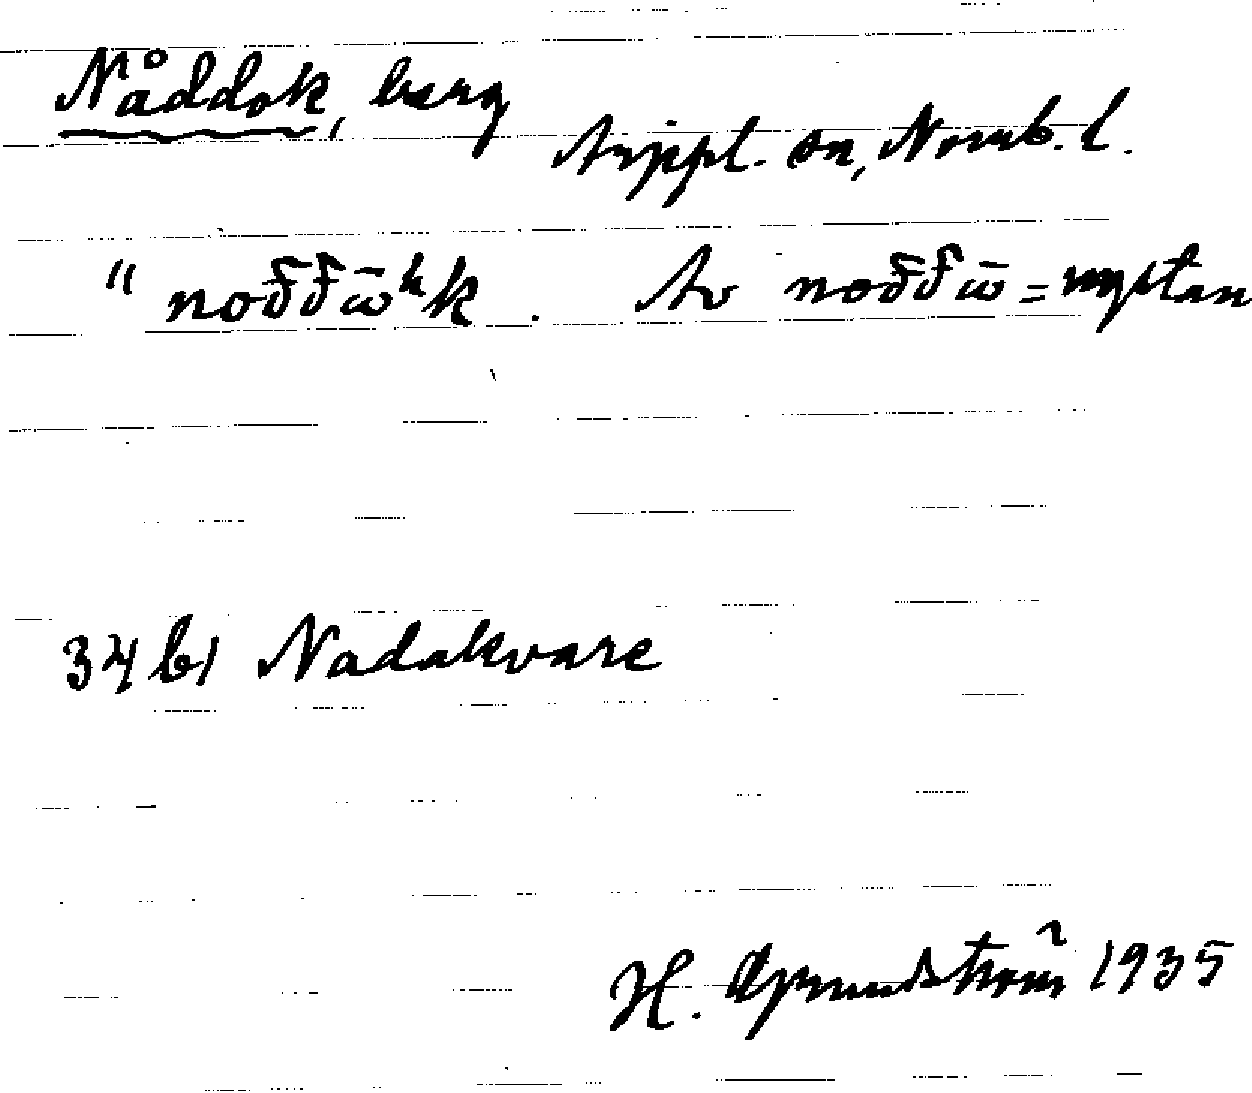 Nåddok, berg
Arjepl. sn, Norrb. l.
" noδδω̄ʰk. Av noδδω̄ = nystan
34 b1 Nadakvare
H. Grundström 1935